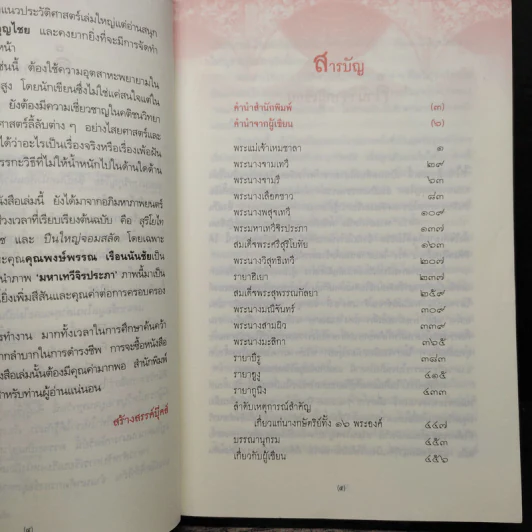 แนวประวัติศาสตร์เล่มใหญ่แต่อ่านสนุก
ญไชย และคงยากยิ่งที่จะมีการจัดทำ
หน้า
ช่นนี้ ต้องใช้ความอุตสาหะพยายามใน
สูง โดยนักเขียนซึ่งไม่ใช่แค่สนใจแต่ใน
ยังต้องมีความเชี่ยวชาญในคติชนวิทยา
าสตร์ลี้ลับต่าง ๆ อย่างไสยศาสตร์และ
ได้ว่าอะไรเป็นเรื่องจริงหรือเรื่องเพ้อฝัน
รรกะวิธีที่ไม่ให้น้ำหนักไปในด้านใดด้าน
สือเล่มนี้ ยังได้มาจากอภิมหาภาพยนตร์
ช่วงเวลาที่เรียบเรียงต้นฉบับ คือ สุริโยไท
ช และ ปืนใหญ่จอมสลัด โดยเฉพาะ
ะคุณคุณพงษ์พรรณ เรือนนันชัยเป็น
นำภาพ 'มหาเทวีจิรประภา' ภาพนี้มาเป็น
ยิ่งเพิ่มสีสันและคุณค่าต่อการครอบครอง
รทำงาน มากทั้งเวลาในการศึกษาค้นคว้า
ากลำบากในการดำรงชีพ การจะซื้อหนังสือ
ังสือเล่มนั้นต้องมีคุณค่ามากพอ สำนักพิมพ์
สำหรับท่านผู้อ่านแน่นอน
สร้างสรรค์บุ๊คส์
(๔)
สารบัญ
คำนำสำนักพิมพ์ (๓)
คำนำจากผู้เขียน (๖)
พระแม่เจ้าเหมชาลา ๑
พระนางจามเทวี ๒๙
พระนางจามรี ๖๓
พระนางเลือดขาว ๘๓
พระนางพสุชเทวี ๑๐๙
พระมหาเทวีจิรประภา ๑๓๗
สมเด็จพระศรีสุริโยทัย ๑๖๓
พระนางวิสุทธิเทวี ๒๐๗
รายาฮิเยา ๒๓๗
สมเด็จพระสุพรรณกัลยา ๒๕๙
พระนางมณีจันทร์ ๓๐๙
พระนางสามผิว ๓๓๙
พระนางมะลิกา ๓๖๕
รายาบีรู ๓๘๓
รายาอูงู ๔๑๕
รายากูนิง ๔๓๓
ลำดับเหตุการณ์สำคัญ
เกี่ยวแก่นางกษัตริย์ทั้ง ๑๖ พระองค์ ๔๔๗
บรรณานุกรม ๔๕๓
เกี่ยวกับผู้เขียน ๔๕๖
(๕)